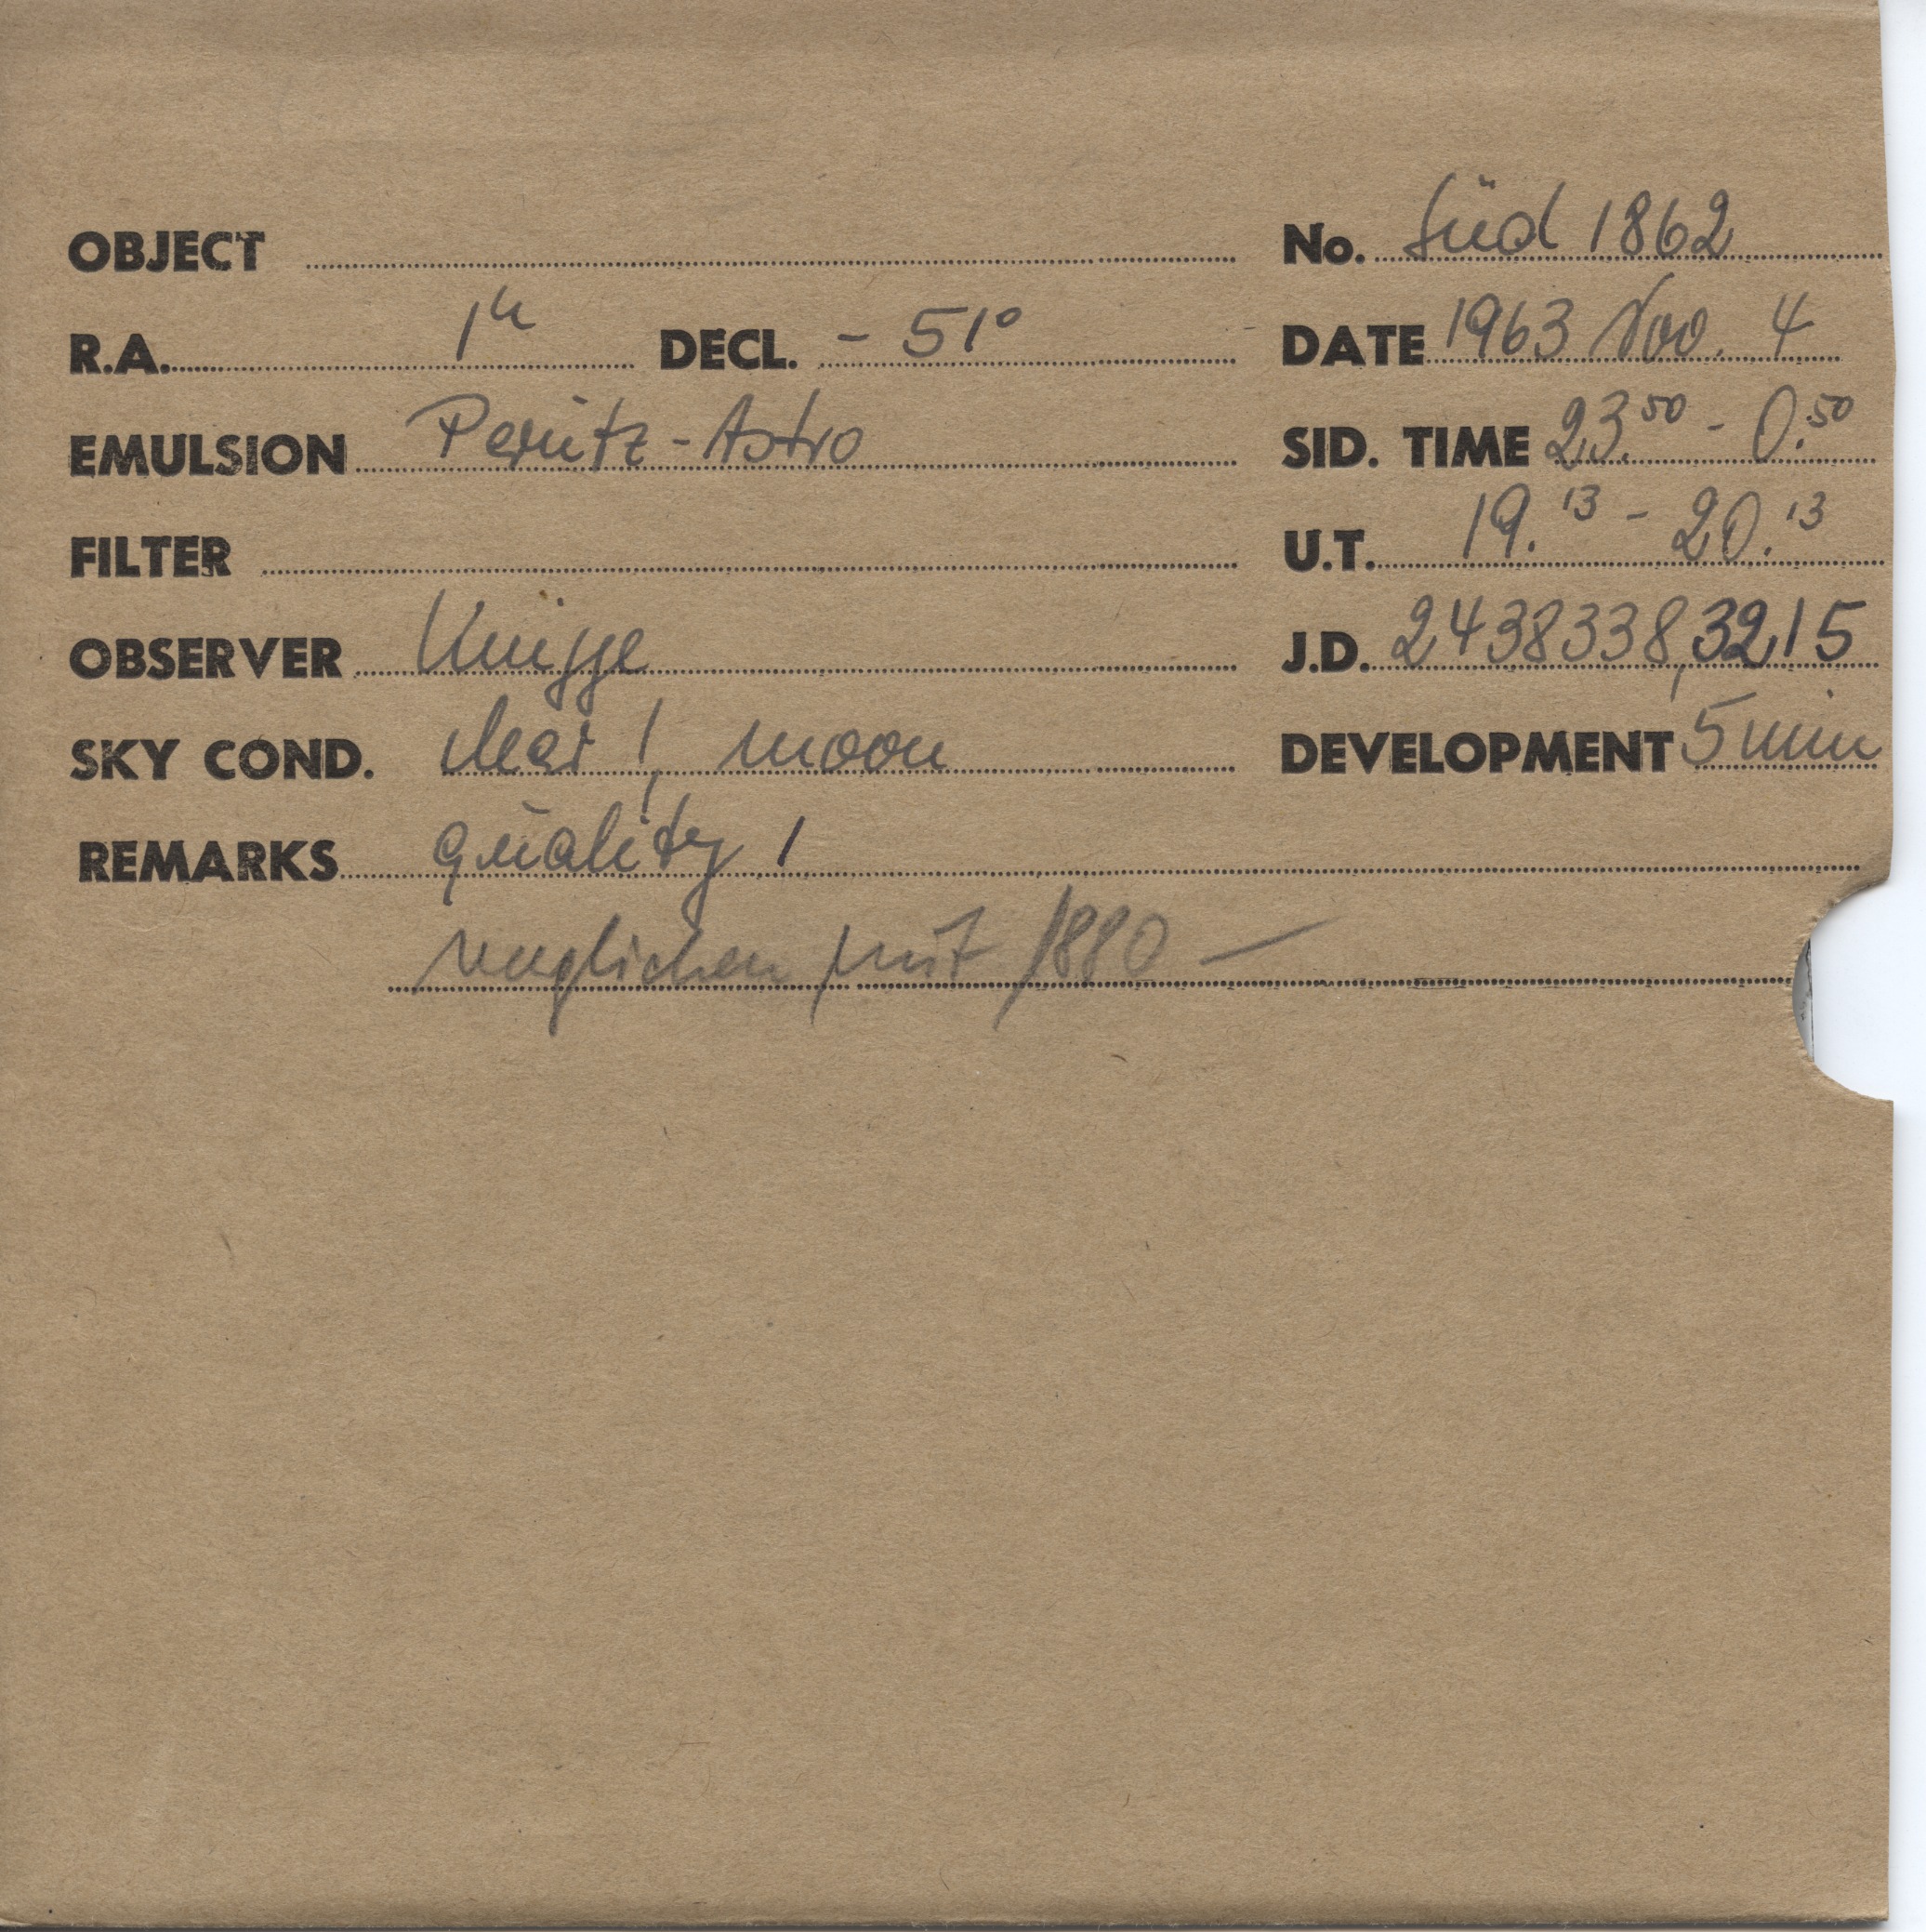 OBJECT
No. Süd 1862
R.A. 1h DECL. - 51°
DATE 1963 Nov. 4
EMULSION Perutz-Astro
SID. TIME 23.50 - 0.50
FILTER
U.T. 19.13 - 20.13
OBSERVER Knigge
J.D. 2438338,3215
SKY COND. clear !, moon
DEVELOPMENT 5 min
REMARKS quality 1
verglichen mit 1880 —